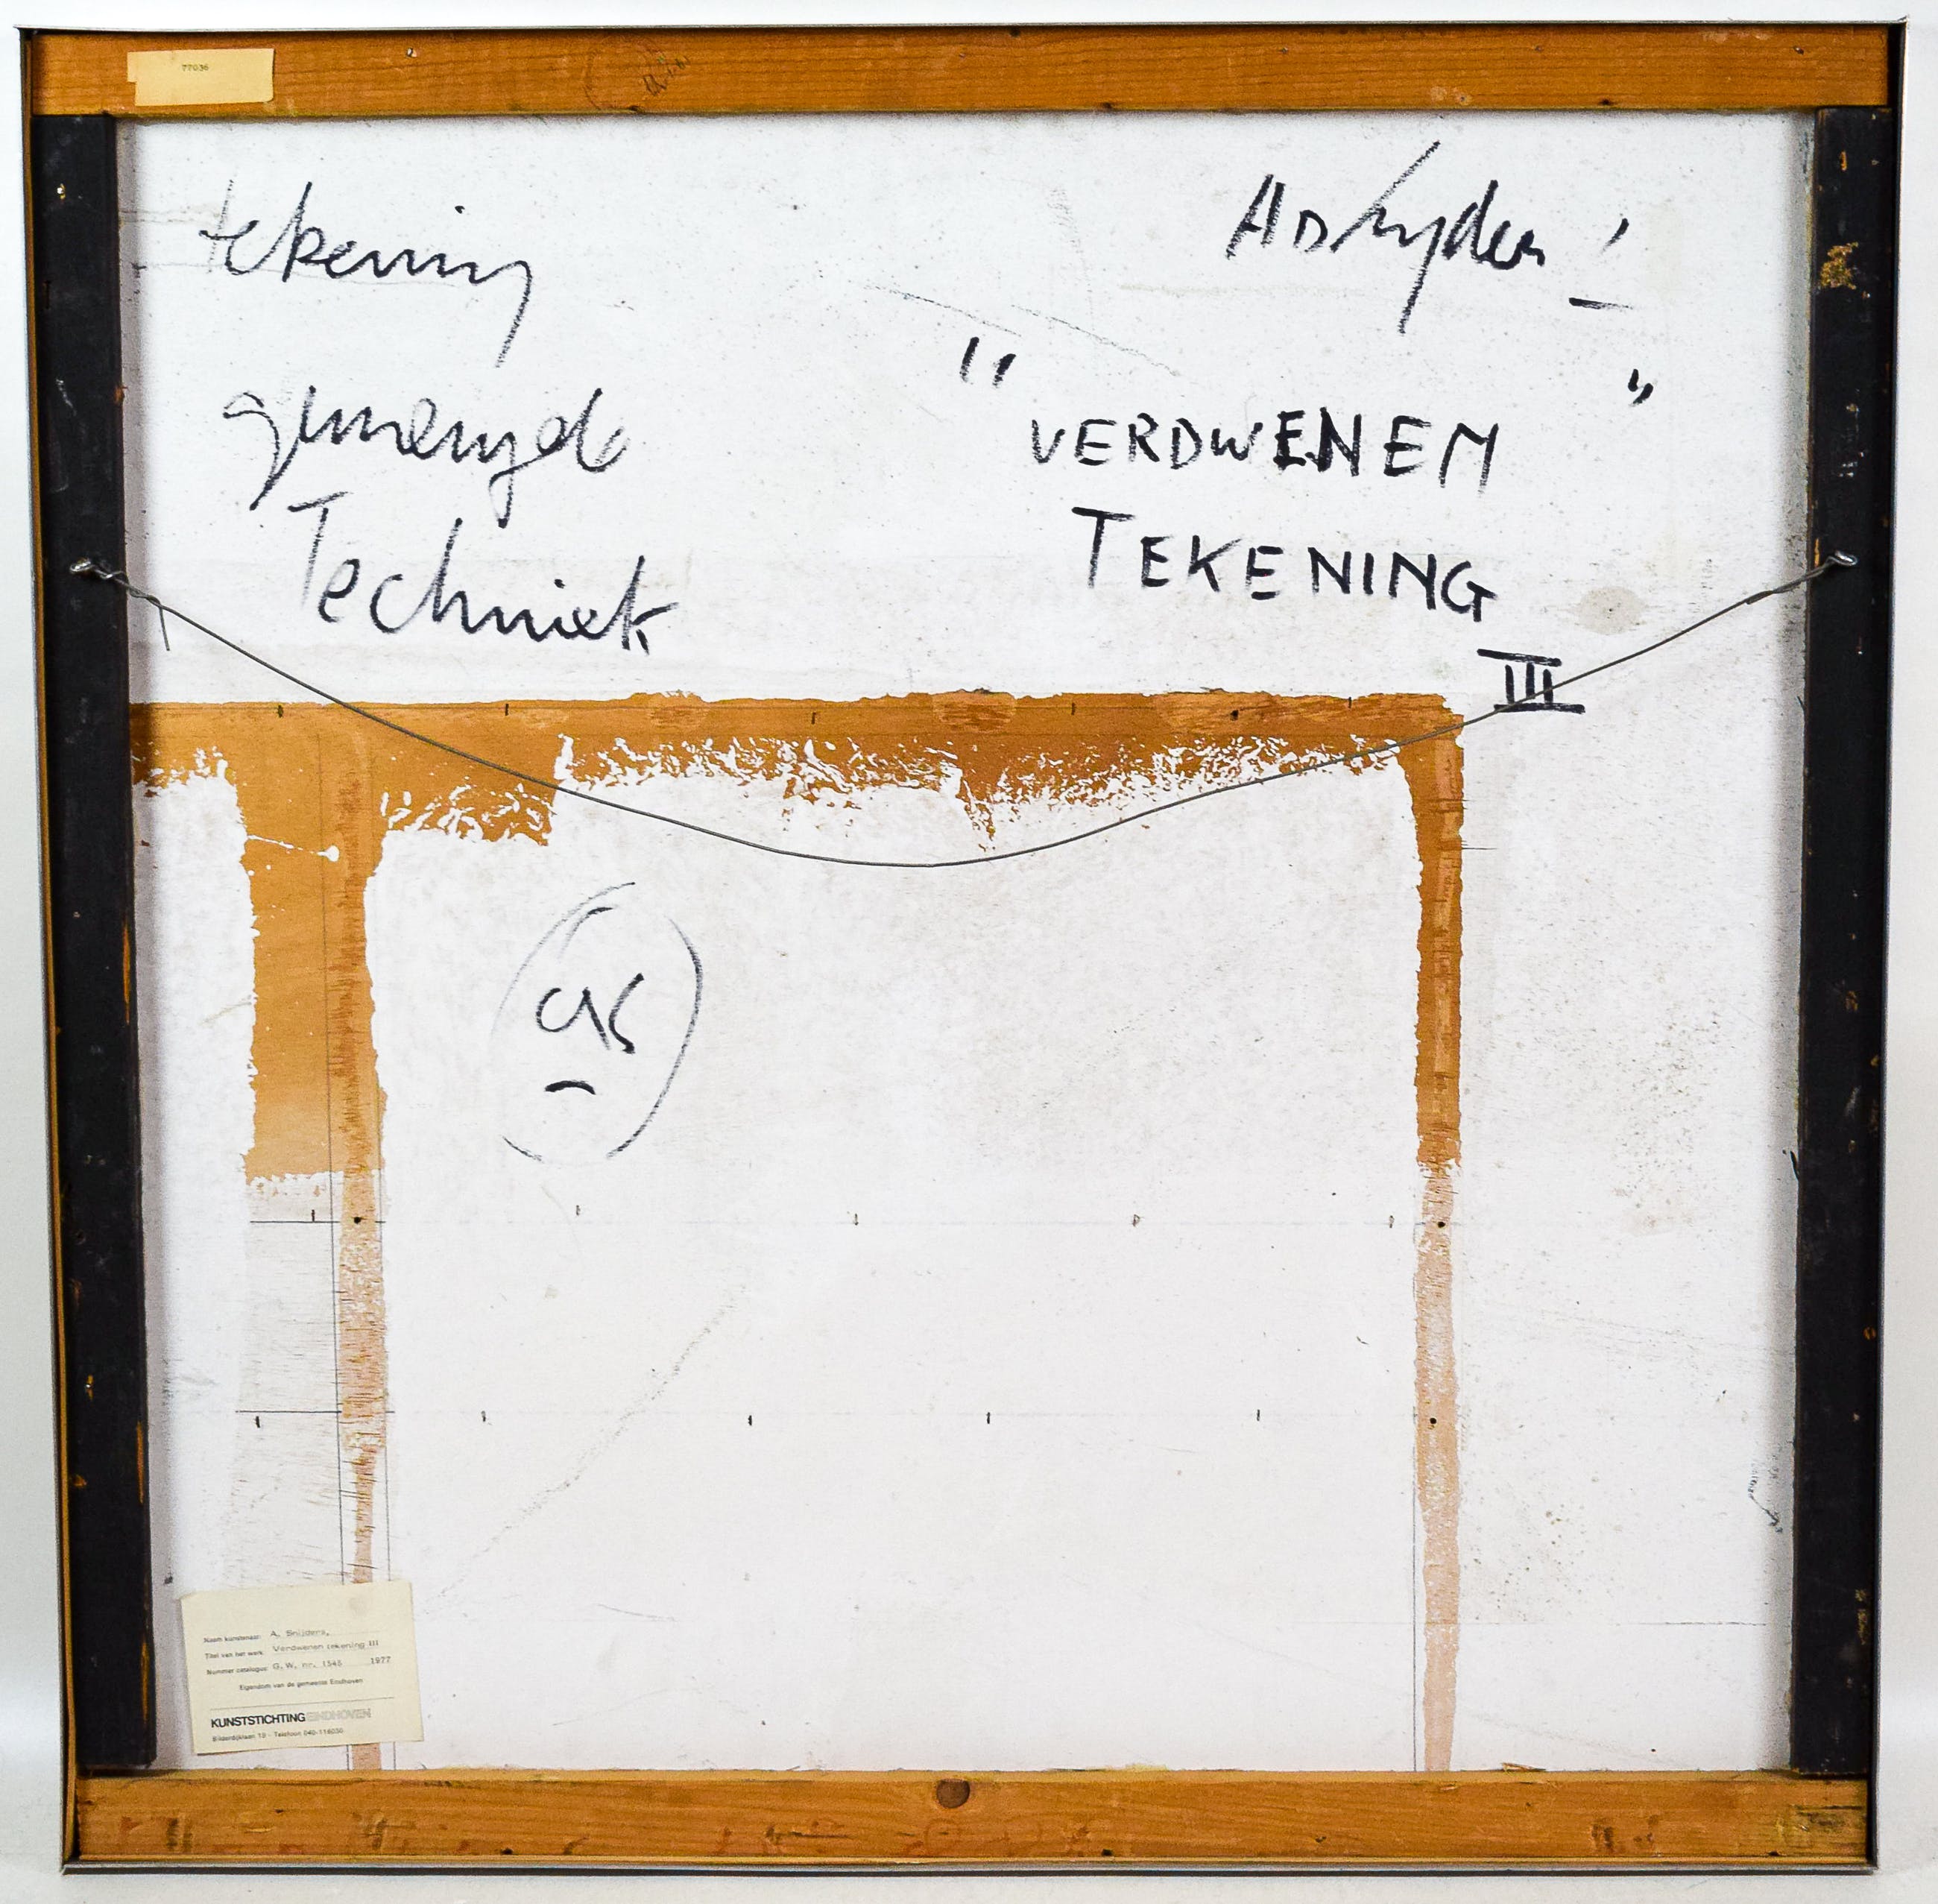 77036
tekening
gemengde
Techniek
AD Snyders
"VERDWENEN"
TEKENING
III
Naam kunstenaar: A. Snijders,
Titel van het werk: Verdwenen tekening III
Nummer catalogus: G.W. nr. 1545 1977
Eigendom van de gemeente Eindhoven
KUNSTSTICHTING EINDHOVEN
Bilderdijklaan 19 - Telefoon 040-116030